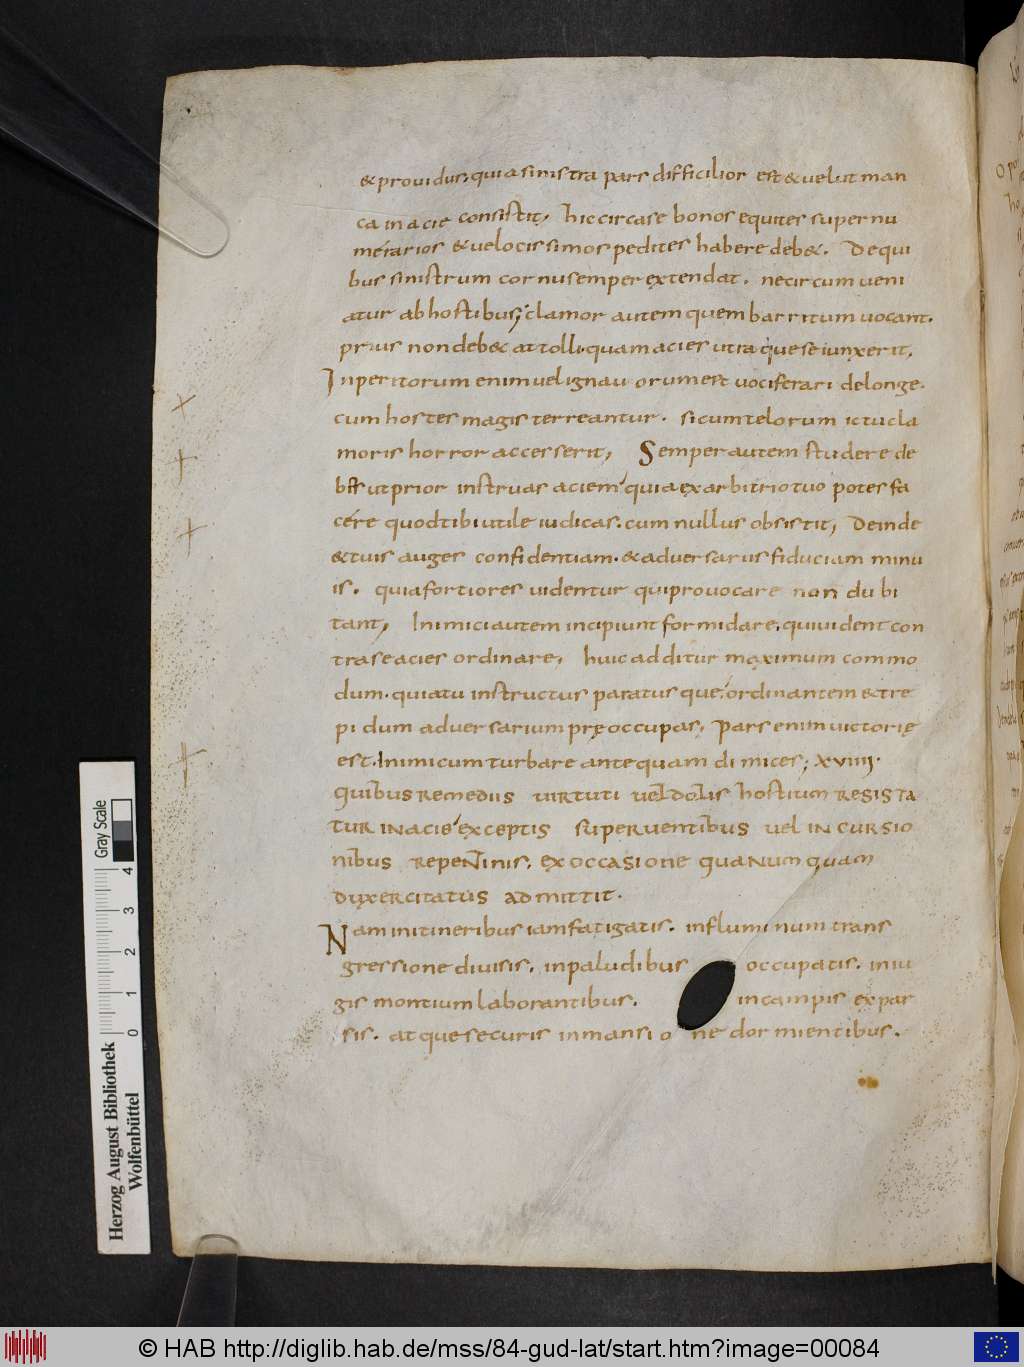 & prouidus, quia sinistra pars difficilior est & uelut man
ca in acie consistit, hic circa se bonos equites supernu
merarios & uelocissimos pedites habere deb&. De qui
bus sinistrum cornu semper extendat. ne circumueni
atur ab hostibus; clamor autem quem barritum uocant.
prius non deb& attolli. quam acies utraque se iunxerit,
Inperitorum enim uel ignauorum est uociferari de longe.
cum hostes magis terreantur. si cum telorum ictu cla
moris horror accesserit, Semper autem studere de
bes ut prior instruas aciem quia ex arbitrio tuo potes fa
cere quod tibi utile iudicas. cum nullus obsistit, Deinde
& tuis auges confidentiam. & aduersariis fiduciam minu
is. quia fortiores uidentur qui prouocare non dubi
tant, Inimici autem incipiunt formidare, qui uident con
tra se acies ordinare, huic additur maximum commo
dum. quia tu instructus paratusque, ordinantem & tre
pidum aduersarium pręoccupas, Pars enim uictorię
est. Inimicum turbare antequam dimices; XVIIII.
Quibus remediis uirtuti uel dolis hostium resista
tur in acie exceptis superuentibus uel incursio
nibus repentinis, ex occasione qua numquam
dux exercitatus admittit.
Nam in itineribus iam fatigatis. in fluminum trans
gressione diuisis. in paludibus occupatis. in iu
gis montium laborantibus. in campis expar
sis. atque securis in mansione dormientibus.
Herzog August Bibliothek
Wolfenbüttel
Gray Scale
0 1 2 3 4
© HAB http://diglib.hab.de/mss/84-gud-lat/start.htm?image=00084